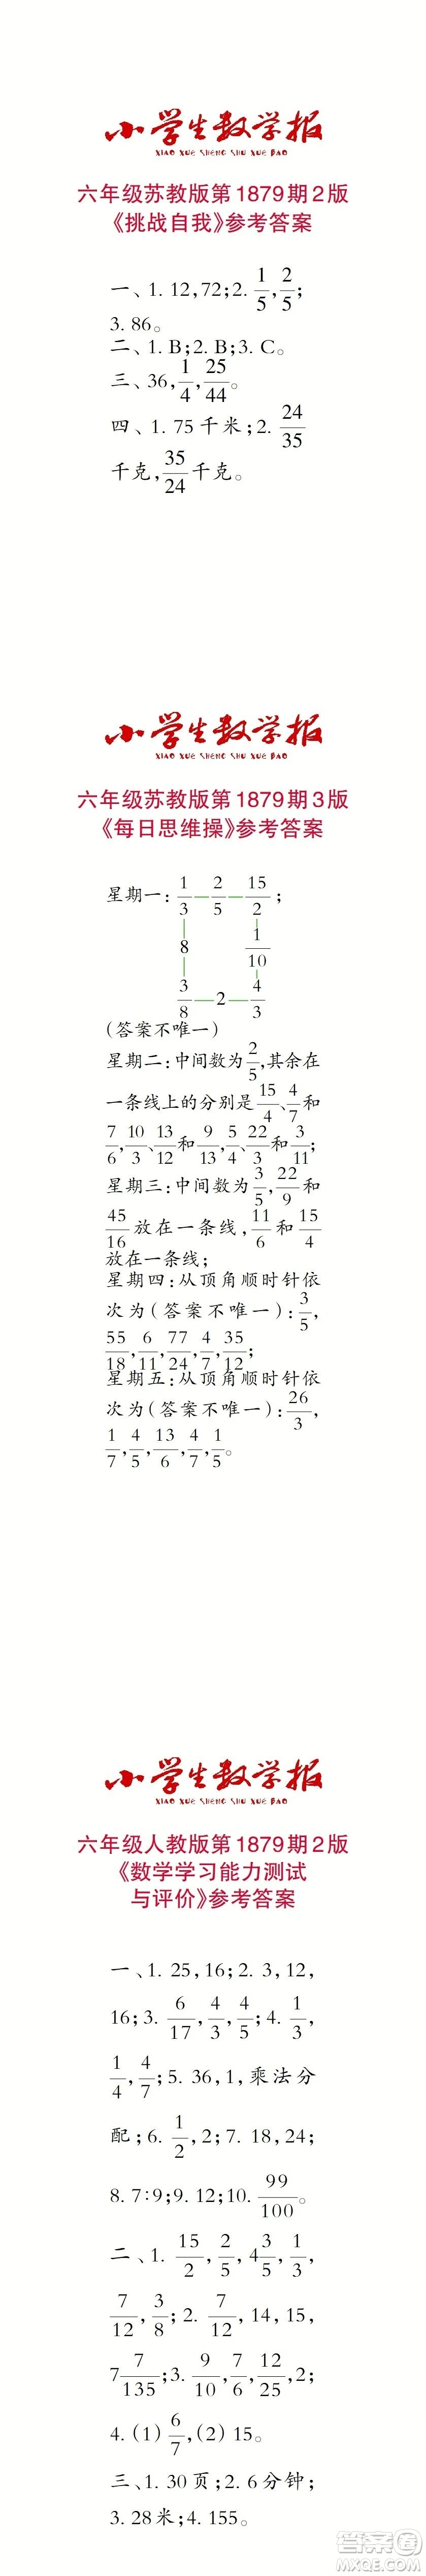 小学生数学报
XIAO XUE SHENG SHU XUE BAO
六年级苏教版第1879期2版
《挑战自我》参考答案
一、1. 12,72;2. 1/5,2/5;
3. 86。
二、1. B;2. B;3. C。
三、36,1/4,25/44。
四、1. 75 千米;2. 24/35
千克,35/24千克。
小学生数学报
XIAO XUE SHENG SHU XUE BAO
六年级苏教版第1879期3版
《每日思维操》参考答案
星期一: 1/3 — 2/5 — 15/2 ;
8 1/10
3/8 — 2 — 4/3
(答案不唯一)
星期二:中间数为2/5,其余在
一条线上的分别是15/4、4/7和
7/6,10/3、13/12和9/13,5/4、22/3和3/11;
星期三:中间数为3/5,22/9和
45/16放在一条线,11/6和15/4
放在一条线;
星期四:从顶角顺时针依
次为(答案不唯一):3/5,
55/18,6/11,77/24,4/7,35/12;
星期五:从顶角顺时针依
次为(答案不唯一):26/3,
1/7,4/5,13/6,4/7,1/5。
小学生数学报
XIAO XUE SHENG SHU XUE BAO
六年级人教版第1879期2版
《数学学习能力测试
与评价》参考答案
一、1. 25,16;2. 3,12,
16;3. 6/17,4/3,4/5;4. 1/3,
1/4,4/7;5. 36,1,乘法分
配;6. 1/2,2;7. 18,24;
8. 7:9;9. 12;10. 99/100。
二、1. 15/2,2/5,4 3/5,1/3,
7/12,3/8;2. 7/12,14,15,
7 7/135;3. 9/10,7/6,12/25,2;
4. (1) 6/7,(2) 15。
三、1. 30页;2. 6分钟;
3. 28米;4. 155。
答案圈
MXQE.COM